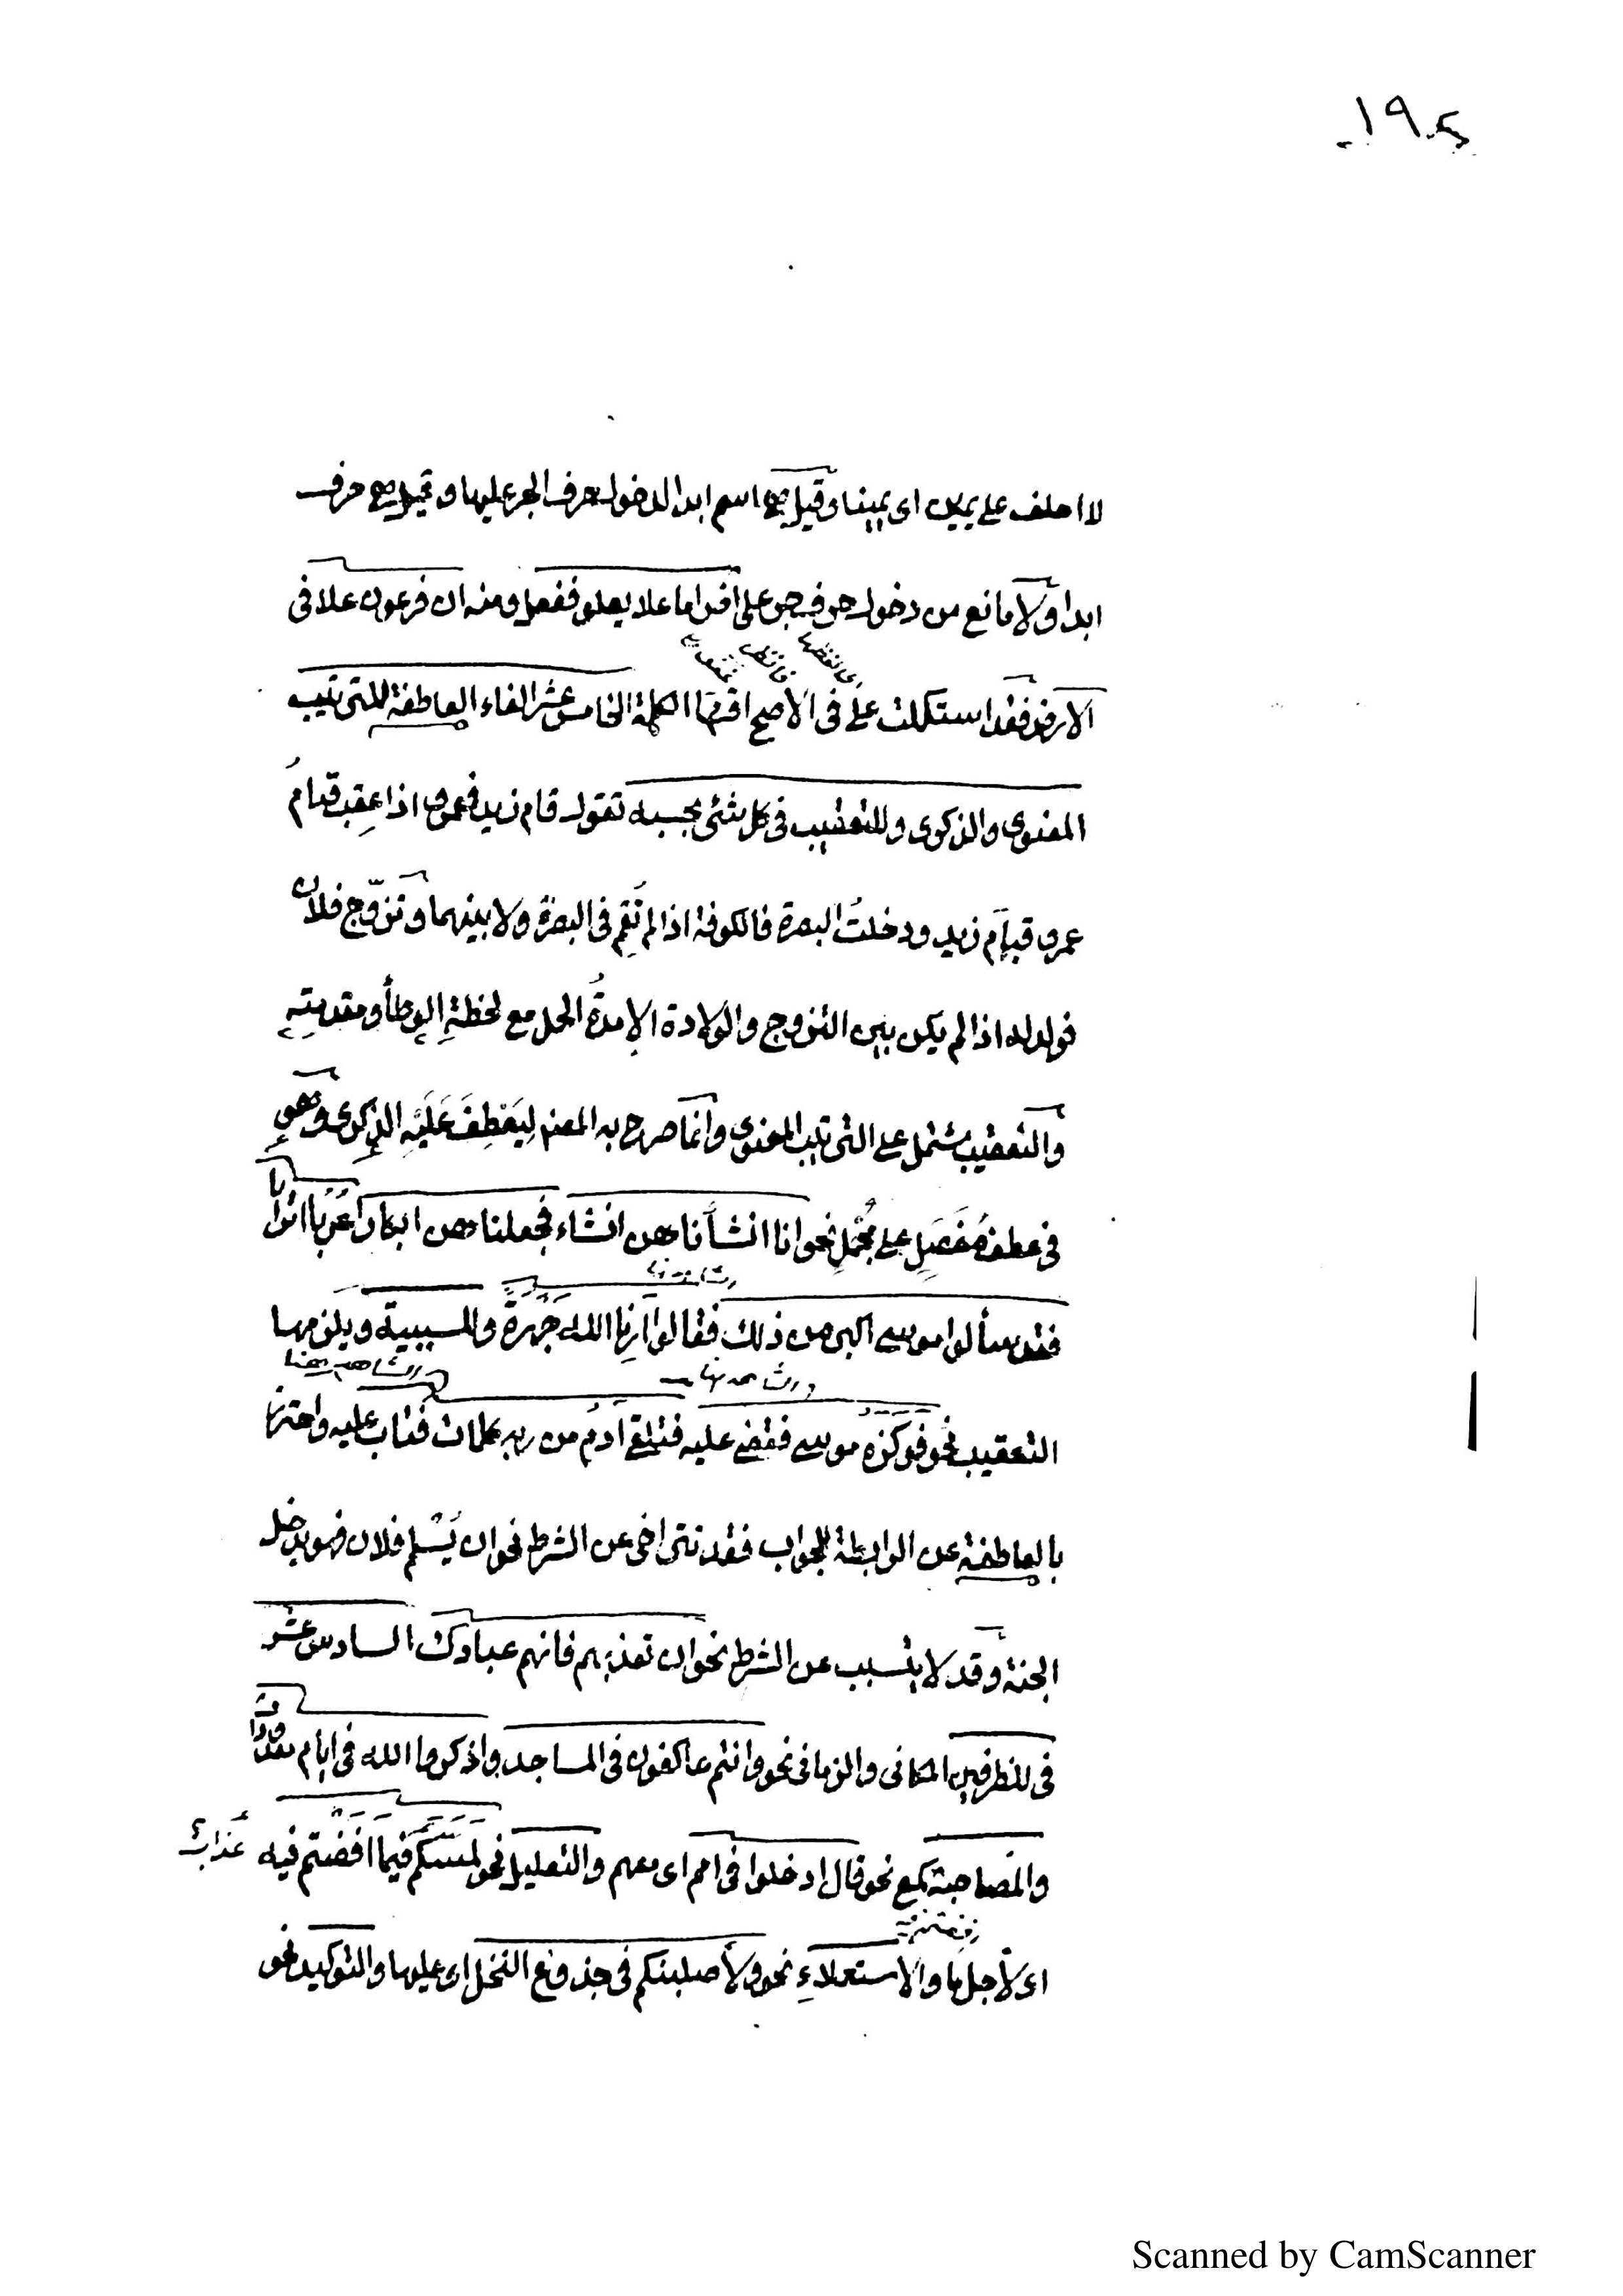 ١٩٤
لا احلف على يمين اى يمينا وقيل هى اسم ابدا لدخول حرف الجر عليها وقيل هى حرف
ابدا ولا مانع من دخول حرف جر على آخر اما علا يعلو ففعل ومنه ان فرعون علا فى
الارض فقد استكملت على فى الاصح اقسامها الكلمة الخامس عشر الفاء العاطفة للترتيب
المعنوى والذكرى وللتعقيب فى كل شئ بحسبه تقول قام زيد فعمرو اذا عقب قيامُ
عمرو قيامَ زيد ودخلتُ البصرة فالكوفة اذا لم تُقِم فى البصرة ولا بينهما وتزوّج فلان
فولد له اذا لم يكن بين التزوج والولادة الا مدةُ الحمل مع لحظةِ الوطأ ومقدمتِهِ
والتعقيب مشتمل على الترتيب المعنوى وانما صرح به المصنف لِيَعْطِفَ عَلَيْهِ الذكرى وهو
فى عطف مُفَصَّلٍ على مُجْمَلٍ نحو انا انشأناهن انشاء فجعلناهن ابكارا عُرُبًا اترابا
فقد سألوا موسى اكبر من ذلك فقالوا ارنا الله جَهْرَةً وللسببية ويلزمها
التعقيب نحو فوكزه موسى فقضى عليه فتلقى آدمُ من ربه كلمات فتاب عليه واحترز
بالعاطفة عن الرابطة للجواب فقد تتراخى عن الشرط نحو ان يُسْلِم فلان فهو يدخل
الجنة وقد لا يتسبب عن الشرط نحو ان تعذبهم فانهم عبادك السادس عشر
فى للظرفين المكانى والزمانى نحو وانتم عاكفون فى المساجد واذكروا الله فى ايام معدودات
والمصاحبة كمع نحو قال ادخلوا فى امم اى معهم والتعليل نحو لَمَسَّكُمْ فيما افضتم فيه عَذاب
اى لاجل ما والاستعلاءِ نحو ولأصلبنكم فى جذوع النخل اى عليها والتوكيد نحو
Scanned by CamScanner